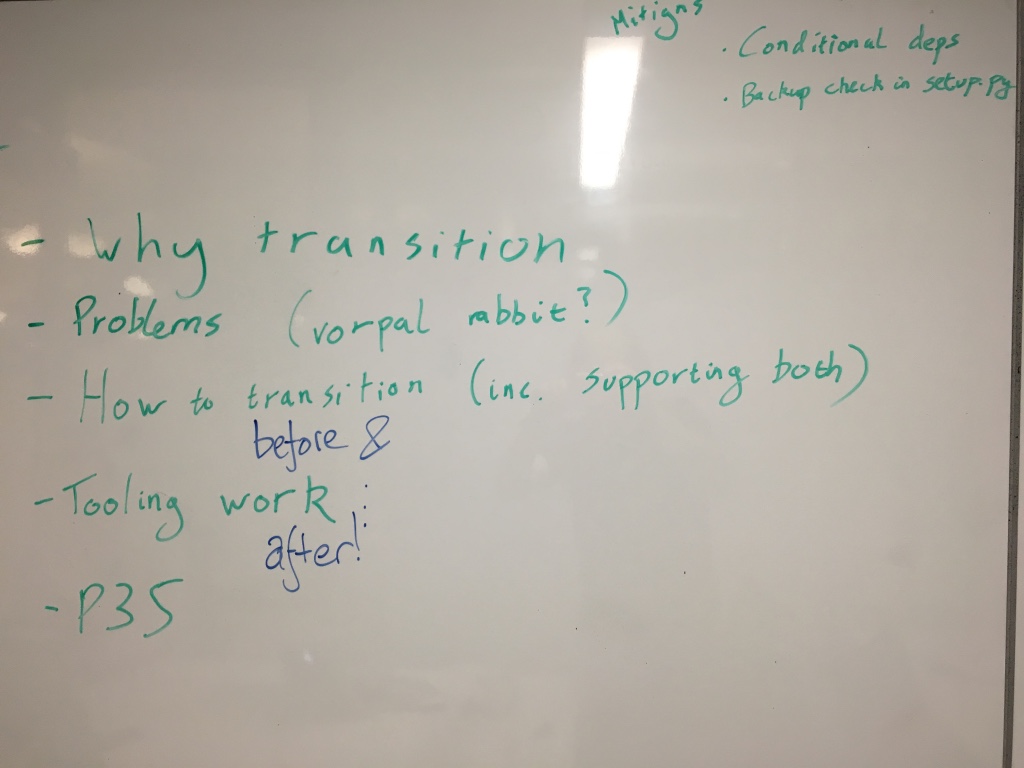 Mitigns
· Conditional deps
· Backup check in setup.py
- Why transition
- Problems (vorpal rabbit?)
- How to transition (inc. supporting both)
before &
- Tooling work
after!
- P3S